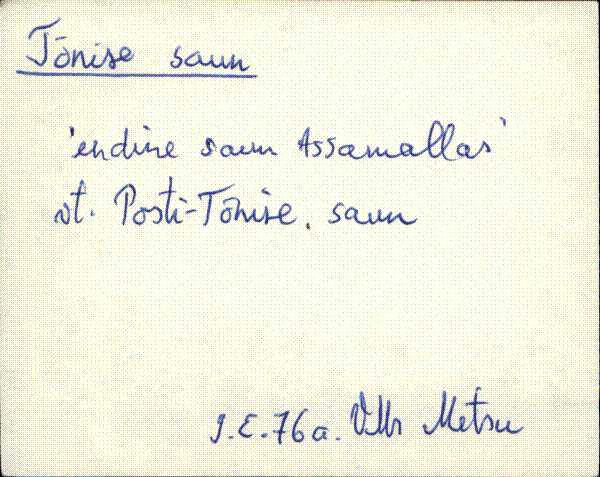 Tõnise saun
'endine saun Assamallas'
vt. Posti-Tõnise saun
J.E. 76 a. VMr Metsu